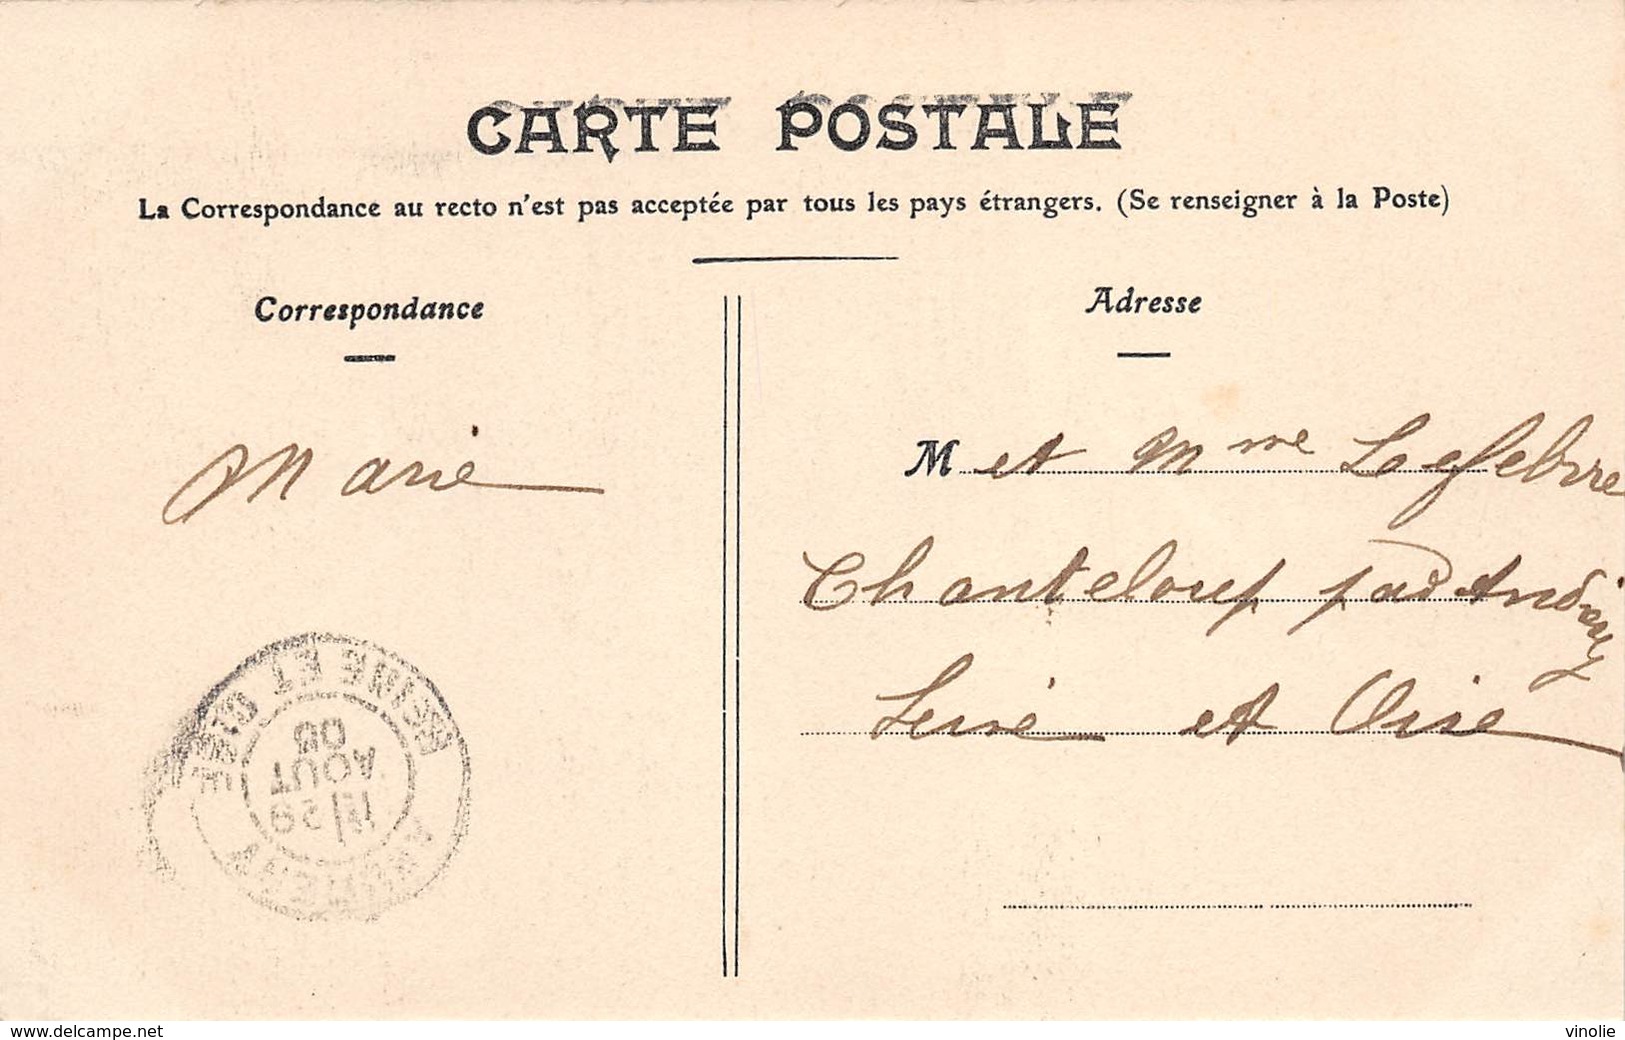 CARTE POSTALE
La Correspondance au recto n'est pas acceptée par tous les pays étrangers. (Se renseigner à la Poste)
Correspondance
Marie
Adresse
M et Mme Lefebvre
Chanteloup par Andrésy
Seine et Oise
SEINE ET OISE
29
AOUT
08
www.delcampe.net
vinolie